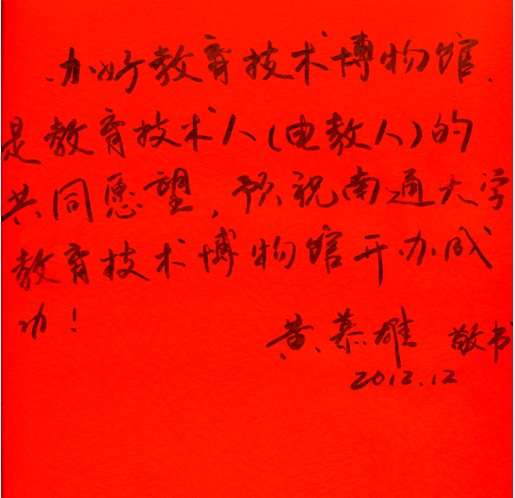 办好教育技术博物馆，
是教育技术人(电教人)的
共同愿望，预祝南通大学
教育技术博物馆开办成
功！
黄慕雄 敬书
2012.12